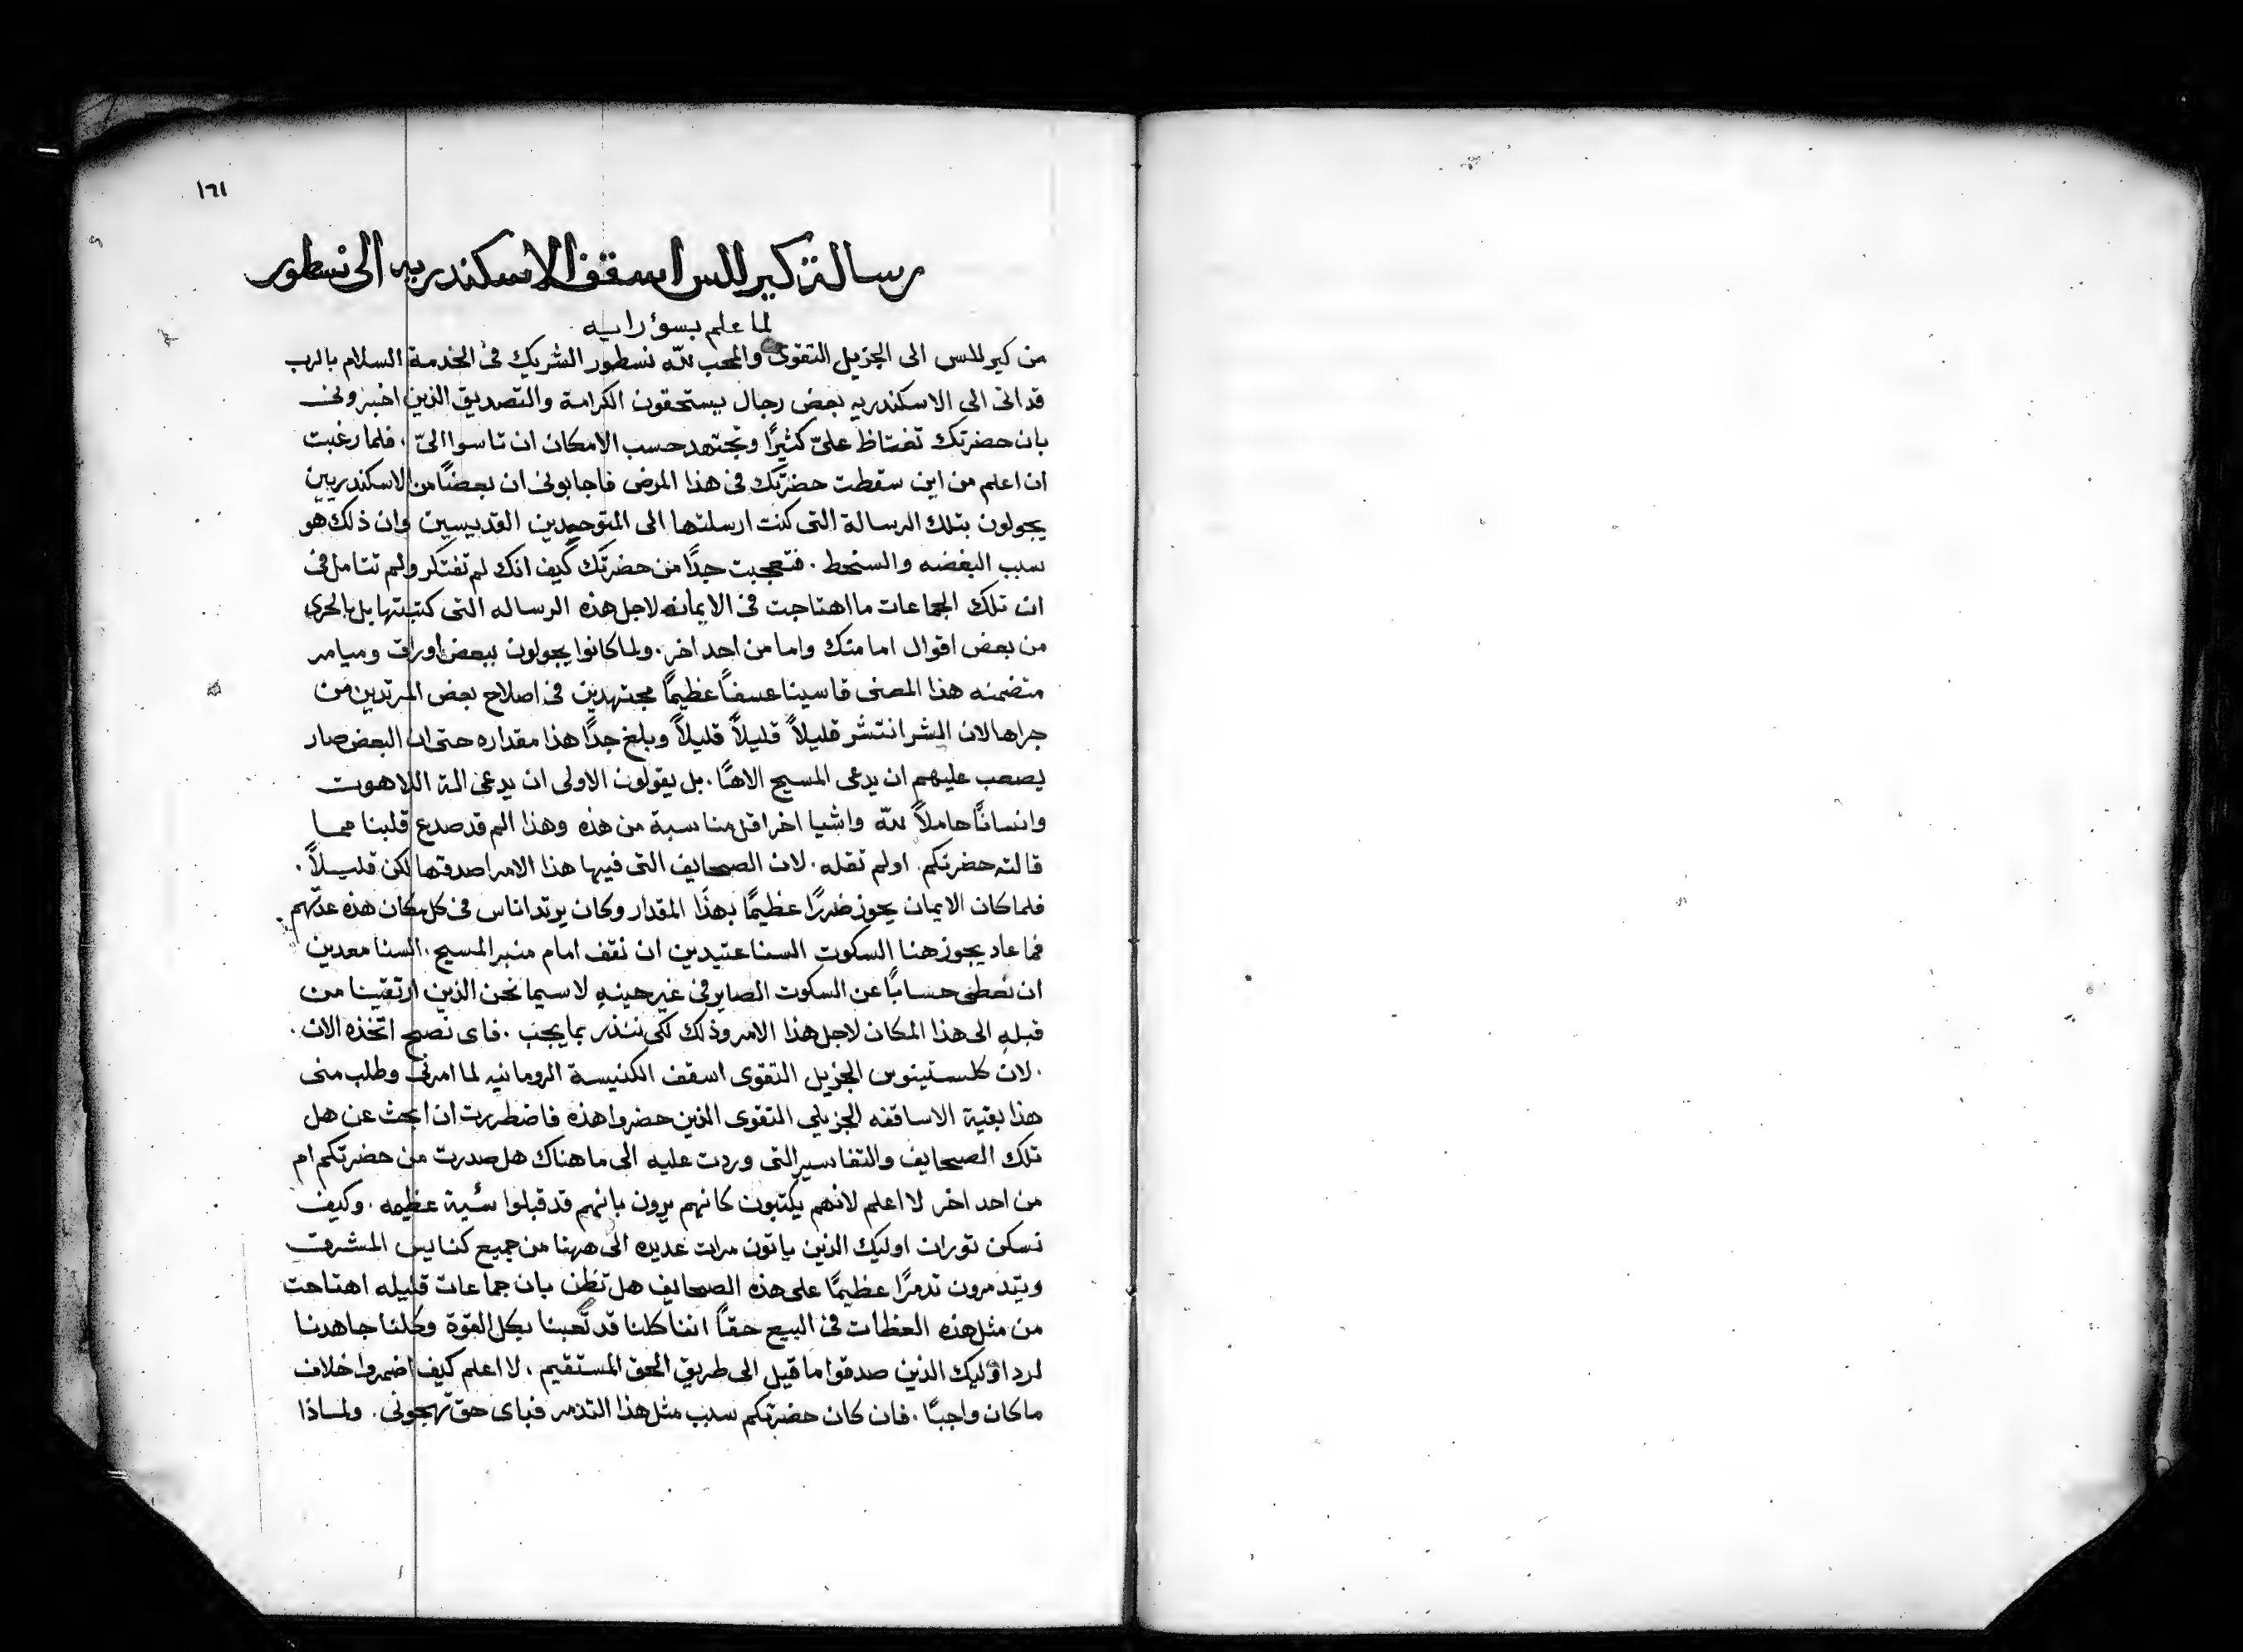 ١٦١
رسالة كيرللس اسقف الاسكندريه الى نسطور
لما علم بسوء رايه
من كيرللس الى الجزيل التقوى والمحب لله نسطور الشريك فى الخدمة السلام بالرب
قد اتى الى الاسكندريه بعض رجال يستحقون الكرامة والتصديق الذين اخبرونى
بان حضرتك تغتاظ علىّ كثيرًا وتجتهد حسب الامكان ان تاسوا الىّ . فلما رغبت
ان اعلم من اين سقطت حضرتك فى هذا المرض فاجابونى ان بعضًا من الاسكندريين
يجولون بتلك الرسالة التى كنت ارسلتها الى المتوحدين القديسين وان ذلك هو
سبب البغضه والسخط . فتعجبت جدًا من حضرتك كيف انك لم تفتكر ولم تتامل فى
ان تلك الجماعات ما اهتاجت فى الايمان لاجل هذه الرساله التى كتبتها بل بالحرى
من بعض اقوال اما منك واما من احد اخر . ولما كانوا يجولون ببعض اوراق وميامر
متضمنه هذا المعنى قاسينا عسفًا عظيمًا مجتهدين فى اصلاح بعض المرتدين من
جراها لان الشر انتشر قليلاً قليلاً قليلاً وبلغ جدًا هذا مقداره حتى ان البعض صار
يصعب عليهم ان يدعى المسيح الاهًا . بل يقولون الاولى ان يدعى الة اللاهوت
وانسانًا حاملاً لله واشيا اخر اقل مناسبة من هذه وهذا الم قد صدع قلبنا مما
قالته حضرتكم اولم تقله . لان الصحايف التى فيها هذا الامر اصدقها لكن قليلاً .
فلما كان الايمان يحوز ضررًا عظيمًا بهذا المقدار وكان يرتد اناس فى كل مكان هذه عدتهم .
فما عاد يجوز هنا السكوت السنا عتيدين ان نقف امام منبر المسيح . السنا معدين
ان نعطى حسابًا عن السكوت الصاير فى غير حينه لا سيما نحن الذين ارتقينا من
قبله الى هذا المكان لاجل هذا الامر وذلك لكى ننذر بما يجب . فاى نصح اتخذه الان .
. لان كلستينوس الجزيل التقوى اسقف الكنيسة الرومانيه لما امرنى وطلب منى
هذا بقية الاساقفه الجزيلى التقوى الذين حضروا هذه فاضطررت ان ابحث عن هل
تلك الصحايف والتفاسير التى وردت عليه الى ما هناك هل صدرت من حضرتكم ام
من احد اخر لا اعلم لانهم يكتبون كانهم يرون بانهم قد قبلوا سئية عظيمه . وكيف
نسكن ثوران اوليك الذين ياتون مرات عديده الى ههنا من جميع كنايس المشرق
ويتدمرون تدمرًا عظيمًا على هذه الصحايف هل تظن بان جماعات قليله اهتاجت
من مثل هذه العظات فى البيع حقًا اننا كلنا قد تعبنا بكل القوة وكلنا جاهدنا
لرد اوليك الذين صدقوا ما قيل الى طريق الحق المستقيم ، لا اعلم كيف اضمروا خلاف
ما كان واجبًا . فان كان حضرتكم سبب مثل هذا التذمر فباى حق تهجونى . ولماذا